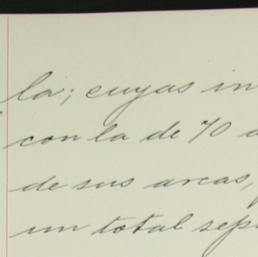 la; cuyas in
con la de 70 a
de sus arcas,
un total sep